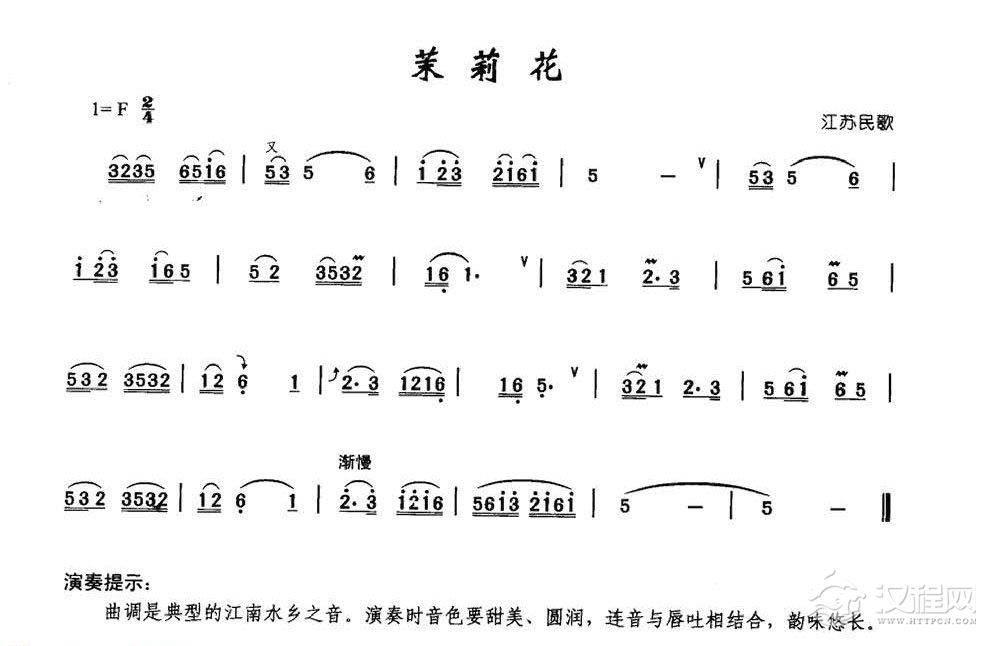 茉莉花
1=F 2/4
江苏民歌
又
3235 6516 | 53 5 6 | 1 23 2161 | 5 – V | 53 5 6 |
1 23 165 | 52 3532 | 16 1. V | 321 2.3 | 561 65 |
532 3532 | 12 6 1 | 2.3 1216 | 16 5. V | 321 2.3 | 561 65 |
渐慢
532 3532 | 12 6 1 | 2.3 1216 | 5613 2161 | 5 – | 5 – ‖
演奏提示:
曲调是典型的江南水乡之音。演奏时音色要甜美、圆润,连音与唇吐相结合,韵味悠长。
汉程网
WWW.HTTPCN.COM